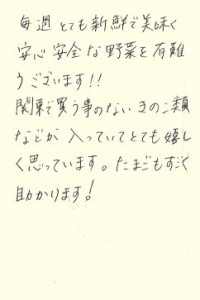 毎週とても新鮮で美味く
安心安全な野菜を有難
うございます!!
関東で買う事のないきのこ類
などが入っていてとても嬉し
く思っています。たまごもすごく
助かります!